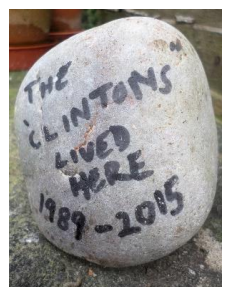 THE
"CLINTONS"
LIVED
HERE
1989-2015